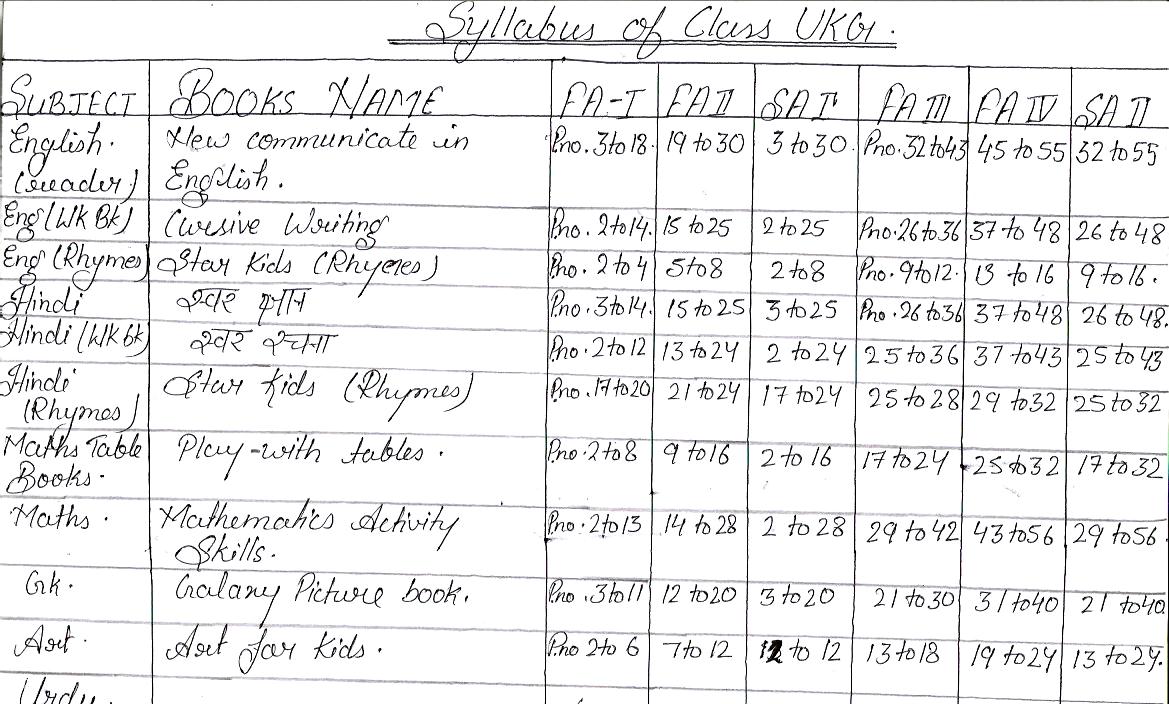 Syllabus of Class UKG.
SUBJECT BOOKS NAME FA-I FA II SA I FA III FA IV SA II
English. New communicate in Pno. 3 to 18. 19 to 30 3 to 30. Pno. 32 to 43 45 to 55 32 to 55
(reader) English.
Eng (WK Bk) Cursive Writing Pno. 2 to 14. 15 to 25 2 to 25 Pno. 26 to 36 37 to 48 26 to 48
Eng (Rhymes) Star Kids (Rhymes) Pno. 2 to 4 5 to 8 2 to 8 Pno. 9 to 12. 13 to 16 9 to 16.
Hindi स्वर Pno. 3 to 14. 15 to 25 3 to 25 Pno. 26 to 36 37 to 48 26 to 48.
Hindi (WK bk) स्वर रचना Pno. 2 to 12 13 to 24 2 to 24 25 to 36 37 to 43 25 to 43
Hindi Star Kids (Rhymes) Pno. 17 to 20 21 to 24 17 to 24 25 to 28 29 to 32 25 to 32
(Rhymes)
Maths Table Play-with tables. Pno. 2 to 8 9 to 16 2 to 16 17 to 24 25 to 32 17 to 32
Books.
Maths. Mathematics Activity Pno. 2 to 13 14 to 28 2 to 28 29 to 42 43 to 56 29 to 56.
Skills.
Gk. Galaxy Picture book. Pno. 3 to 11 12 to 20 3 to 20 21 to 30 31 to 40 21 to 40.
Art. Art for Kids. Pno 2 to 6 7 to 12 2 to 12 13 to 18 19 to 24 13 to 24.
Urdu.